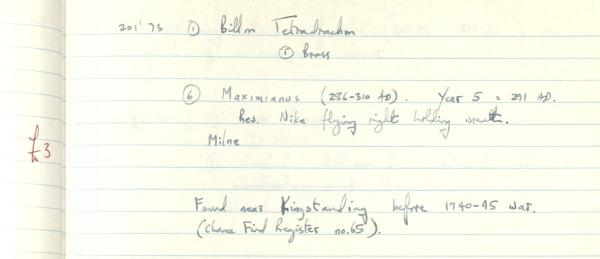 201'73 ① Billon Tetradrachm
① Brass
⑥ Maximianus (286-310 AD). Year 5 = 291 AD.
Rev. Nike flying right holding wreath.
Milne
£3
Found near Kingstanding before 1940-45 war.
(Chance Find Register no.65).